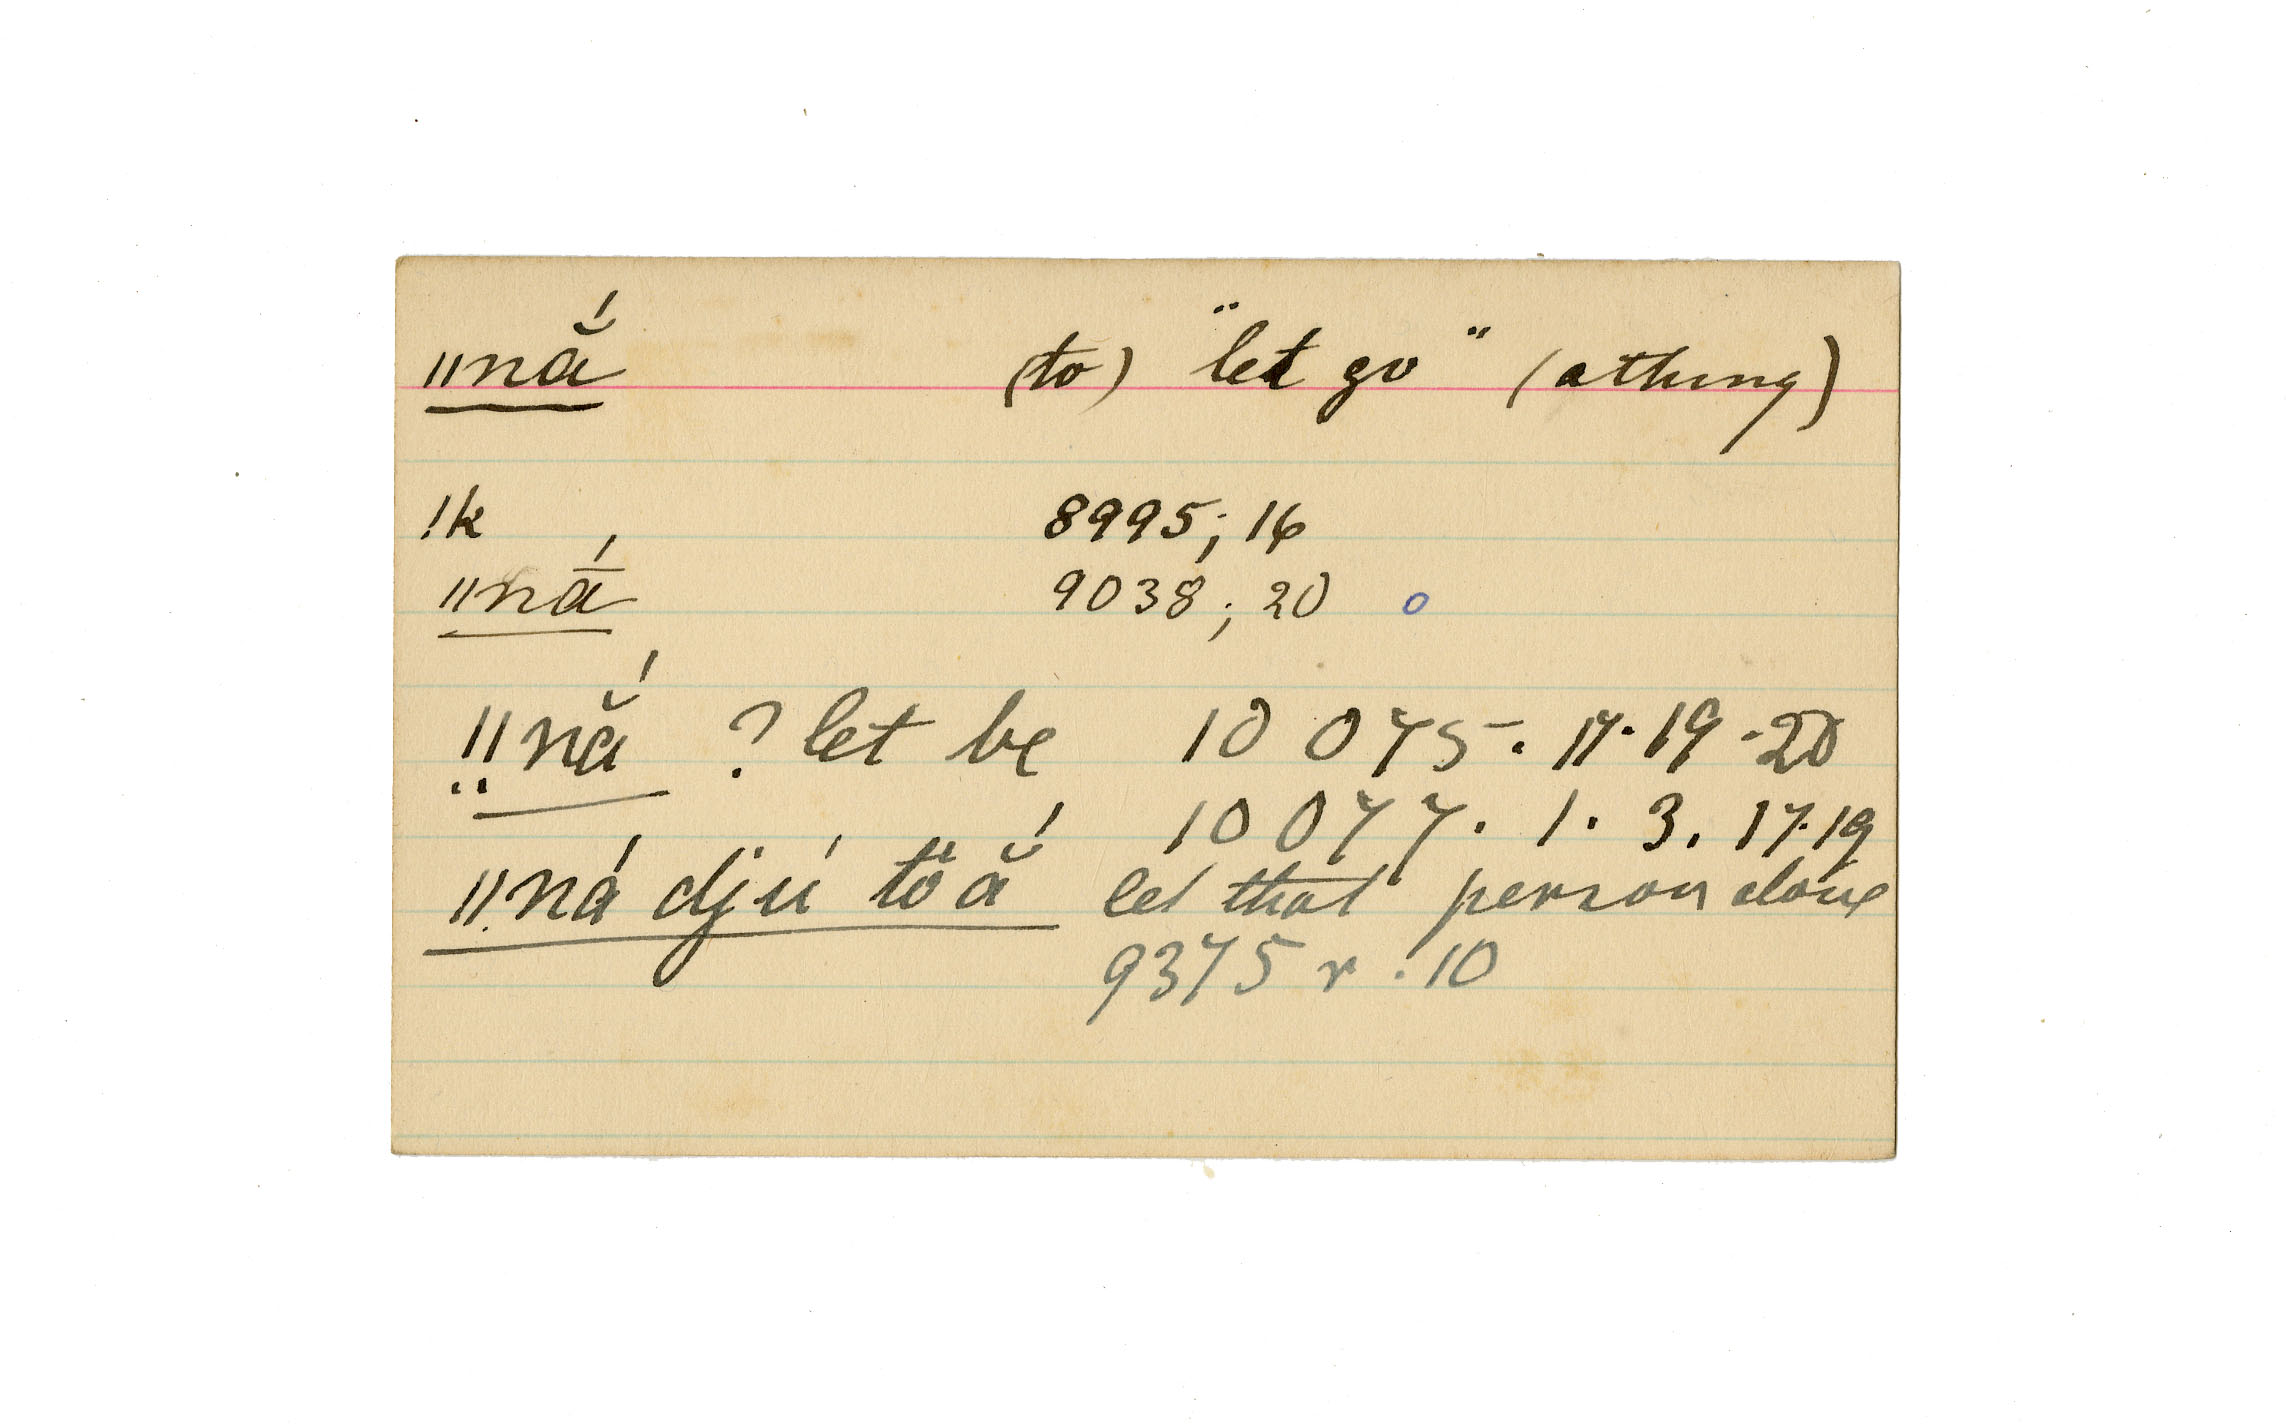 ǁnắ (to) "let go" (a thing)
!k 8995; 16
ǁnā́ 9038; 20 o
ǁ̤nắ ? let be 10 075. 17. 19. 20
10 077. 1. 3. 17. 19
ǁná djú tŏ̈ ắ let that person alone
9375 r. 10